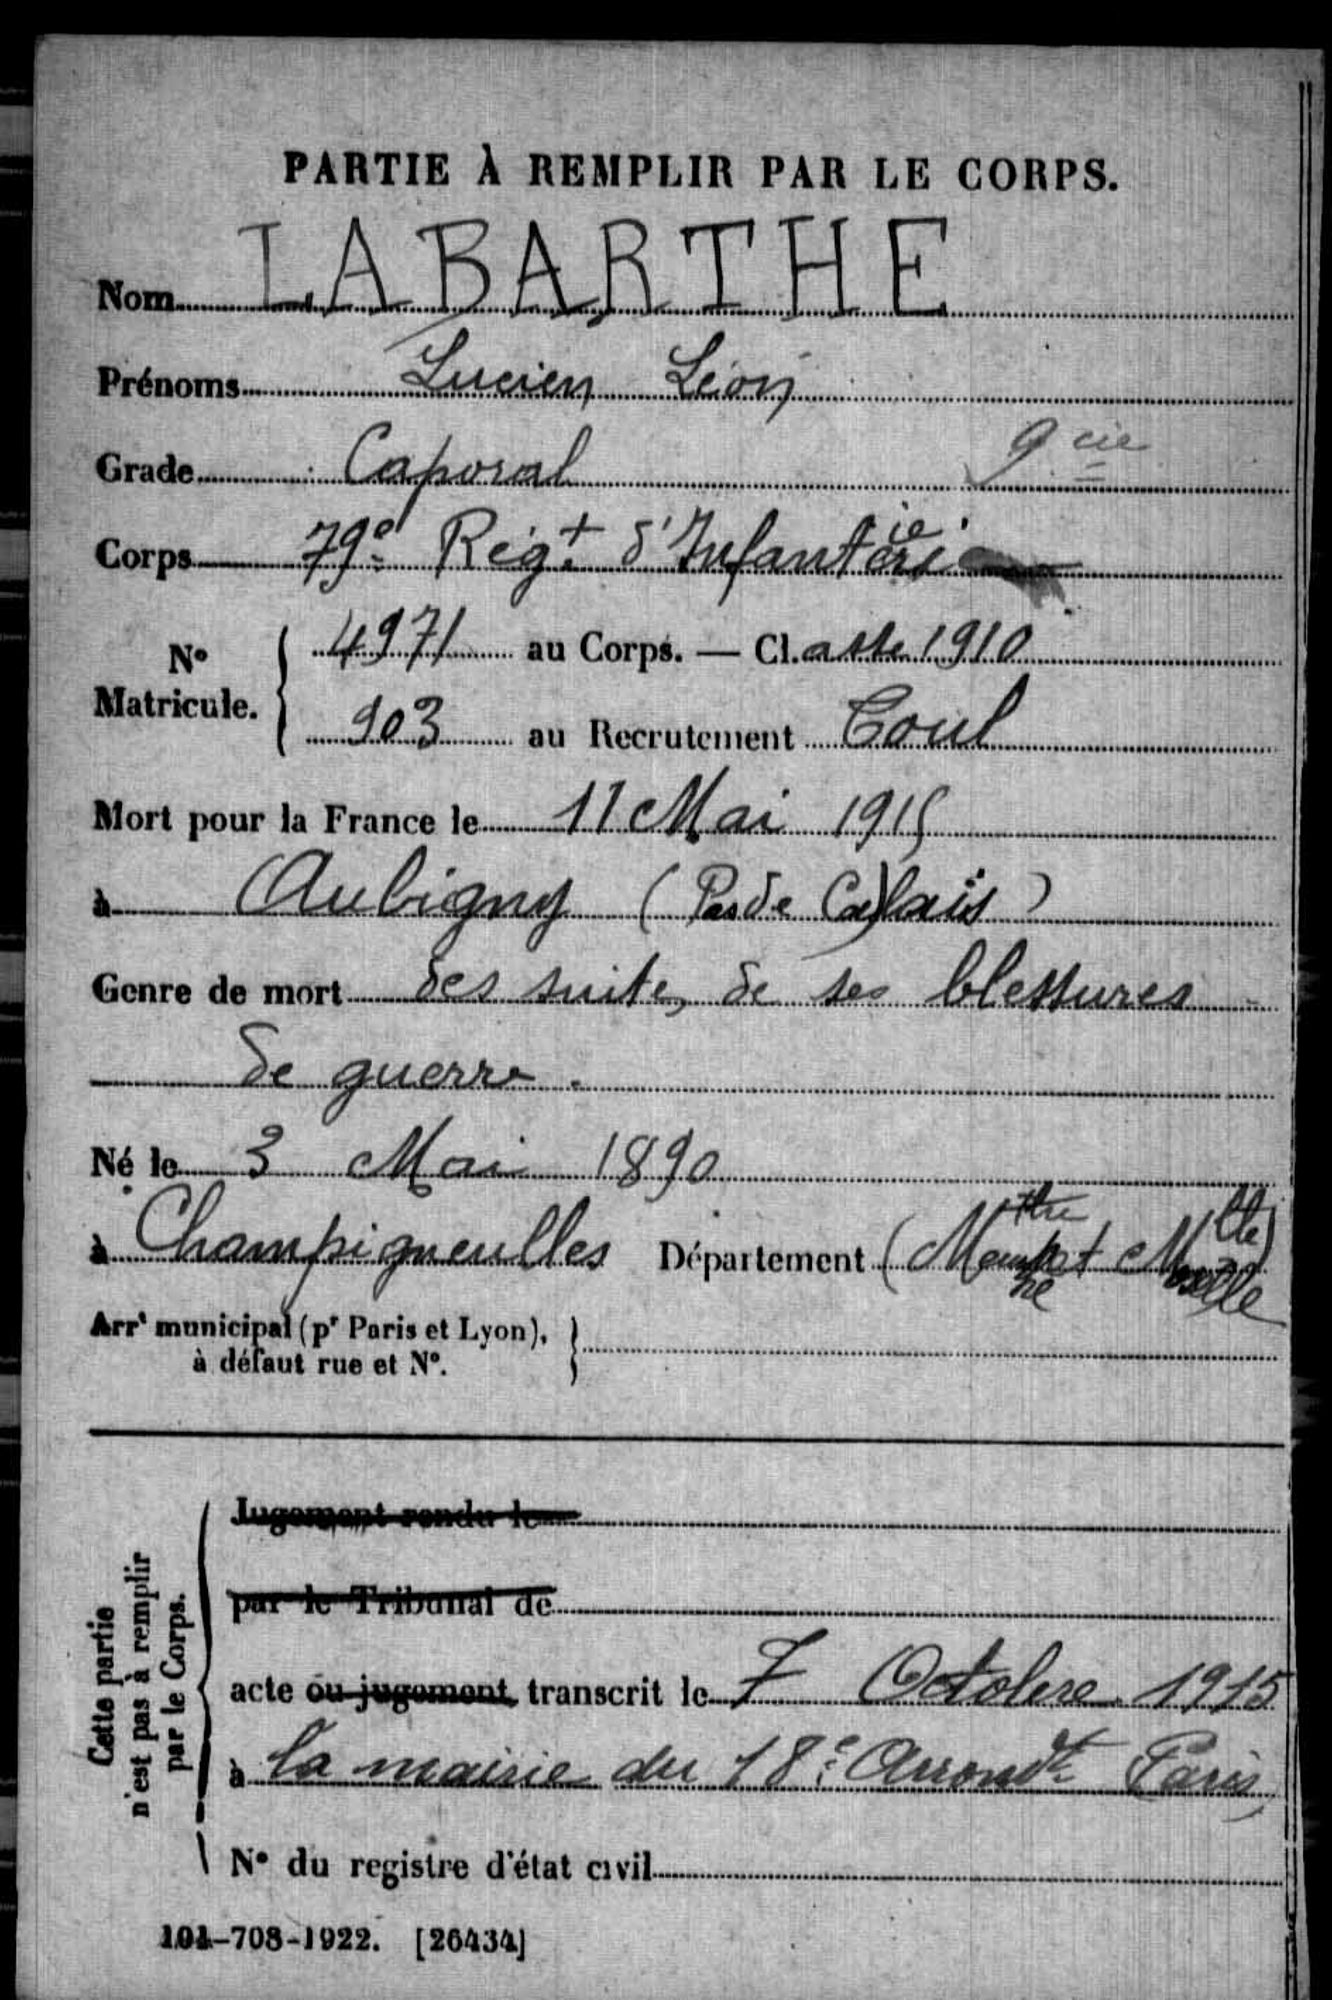 PARTIE À REMPLIR PAR LE CORPS.
Nom LABARTHE
Prénoms Lucien Léon
Grade Caporal 9 cie
Corps 79e Régt d'Infanterie
N° Matricule. 4971 au Corps. — Cl.asse 1910
903 au Recrutement Toul
Mort pour la France le 11 Mai 1915
à Aubigny (Pas de Calais)
Genre de mort des suites de ses blessures
de guerre.
Né le 3 Mai 1890
à Champigneulles Département (Mthe et Mlle)
Arrt municipal (pr Paris et Lyon),
à défaut rue et N°.
Cette partie
n'est pas à remplir
par le Corps.
Jugement rendu le
par le Tribunal de
acte ou jugement transcrit le 7 Octobre 1915
à la mairie du 18e Arrondt Paris
N° du registre d'état civil
101-708-1922. [26434]